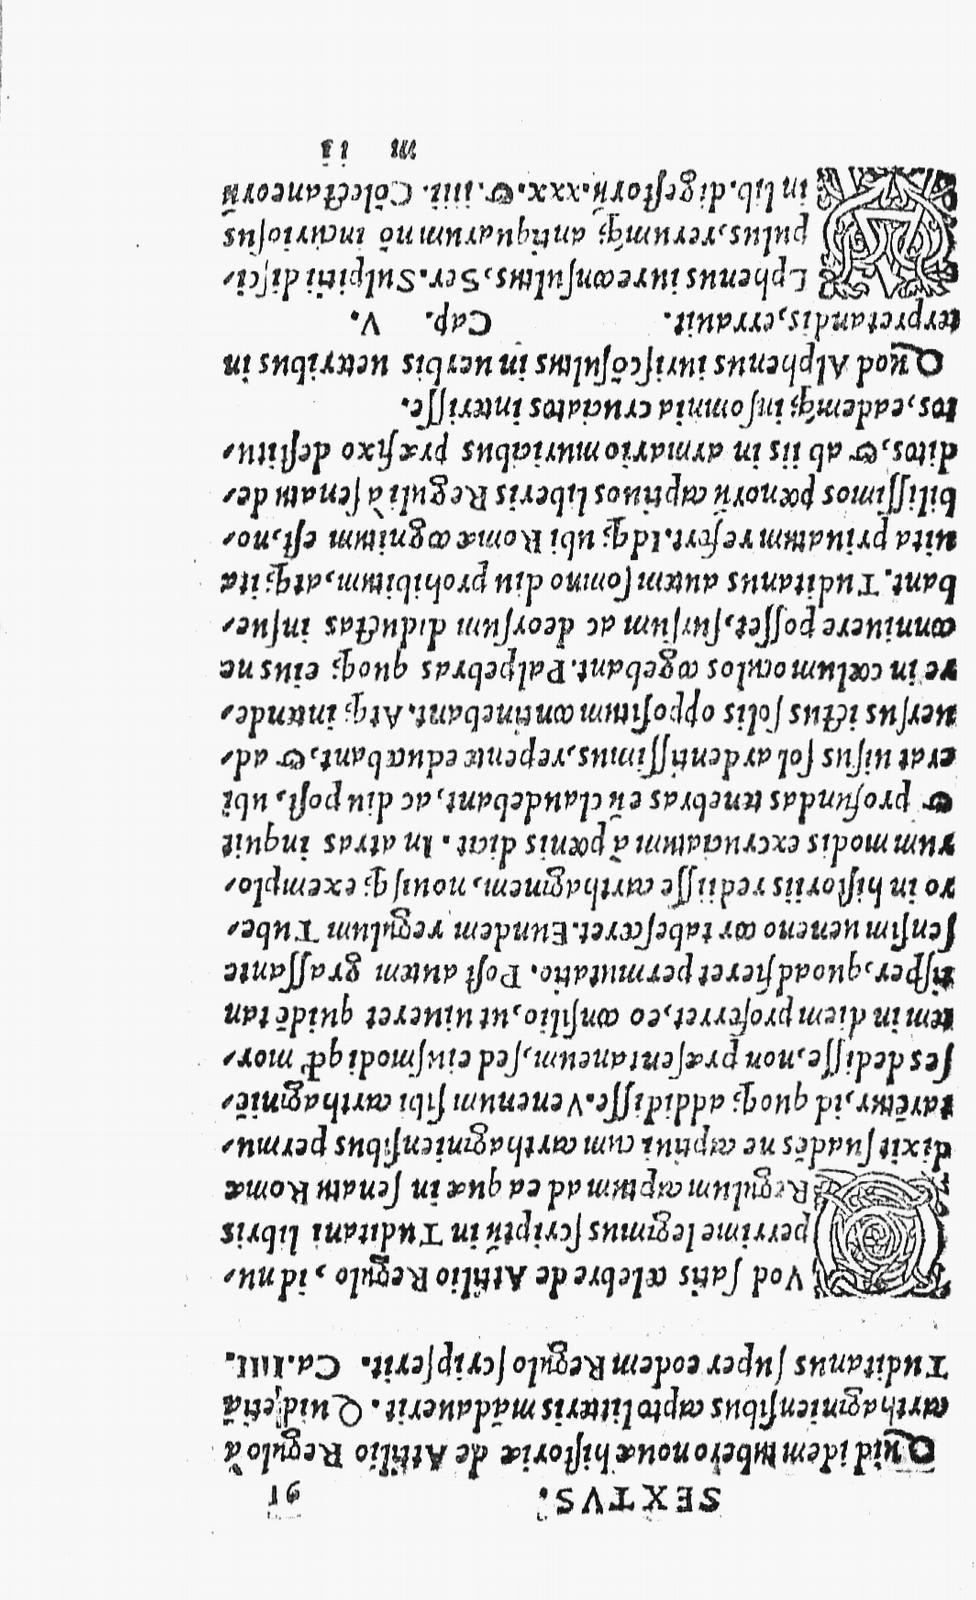 SEXTVS. 91
Quid idem tubero nouæ historiæ de Attilio Regulo à
carthaginiensibus capto litteris mādauerit. Quid etiā
Tuditanus super eodem Regulo scripserit. Ca.IIII.
QVod satis celebre de Attilio Regulo, id nu-
perrime legimus scriptū in Tuditani libris
Regulum captum ad ea quæ in senatu Romæ
dixit suadēs ne captiui cum carthaginiensibus permu-
tarētur, id quoq; addidisse. Venenum sibi carthaginiē-
ses dedisse, non præsentaneum, sed eiusmodi qď mor-
tem in diem proferret, eo consilio, ut uiueret quidē tan
tisper, quoad fieret permutatio. Post autem grassante
sensim ueneno cōtabesceret. Eundem regulum Tube-
ro in historiis rediisse carthaginem, nouisq; exemplo-
rum modis excruciatum à pœnis dicit. In atras inquit
& profundas tenebras eū claudebant, ac diu post, ubi
erat uisus sol ardentissimus, repente educebant, & ad-
uersus ictus solis oppositum continebant. Atq; intende-
re in cœlum oculos cogebant. Palpebras quoq; eius ne
conniuere posset, sursum ac deorsum diductas insue-
bant. Tuditanus autem somno diu prohibitum, atq; ita
uita priuatum refert. Idq; ubi Romæ cognitum est, no-
bilissimos pœnorū captiuos liberis Reguli à senatu de-
ditos, & ab iis in armario muricibus præfixo destitu-
tos, eademq; insomnia cruciatos interisse.
Quod Alphenus iurisconsultus in uerbis ueteribus in
terpretandis, errauit. Cap. V.
ALphenus iureconsultus, Ser. Sulpitii disci-
pulus, rerumq; antiquarum nō incuriosus
in lib. digestorū. xxx. & .iiii. Cōlectaneorū
m ii